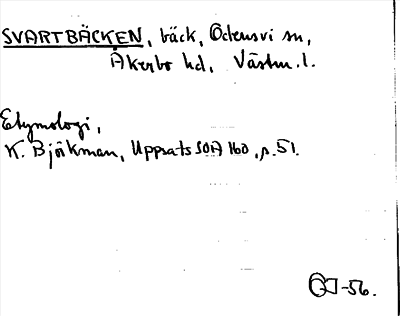 SVARTBÄCKEN, bäck, Odensvi sn,
Åkerbo hd, Västm. l.
Etymologi,
K. Björkman, Uppsats SOA 160, s. 51.
-56.